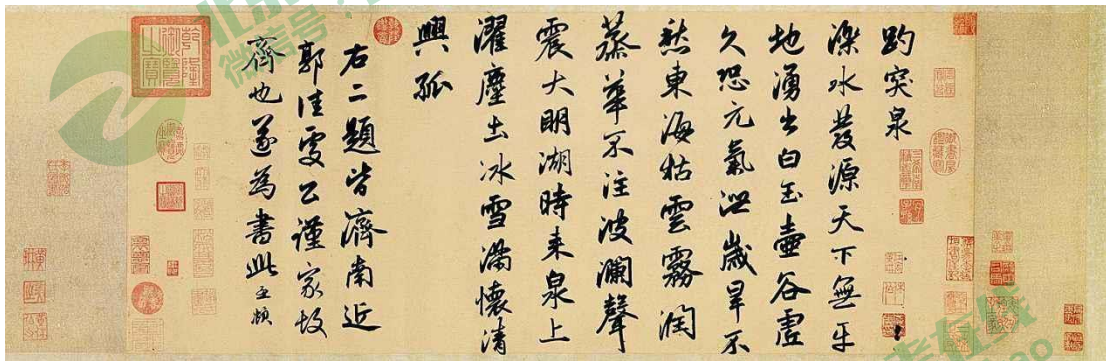 趵突泉
濼水發源天下無平
地湧出白玉壺谷虛
久恐元氣泄歲旱不
愁東海枯雲霧潤
蒸華不注波瀾聲
震大明湖時來泉上
濯塵土冰雪滿懷清
興孤
右二題皆濟南近
郭佳處公謹家故
齊也遂為書此孟頫
乾隆御覽之寶
微信号